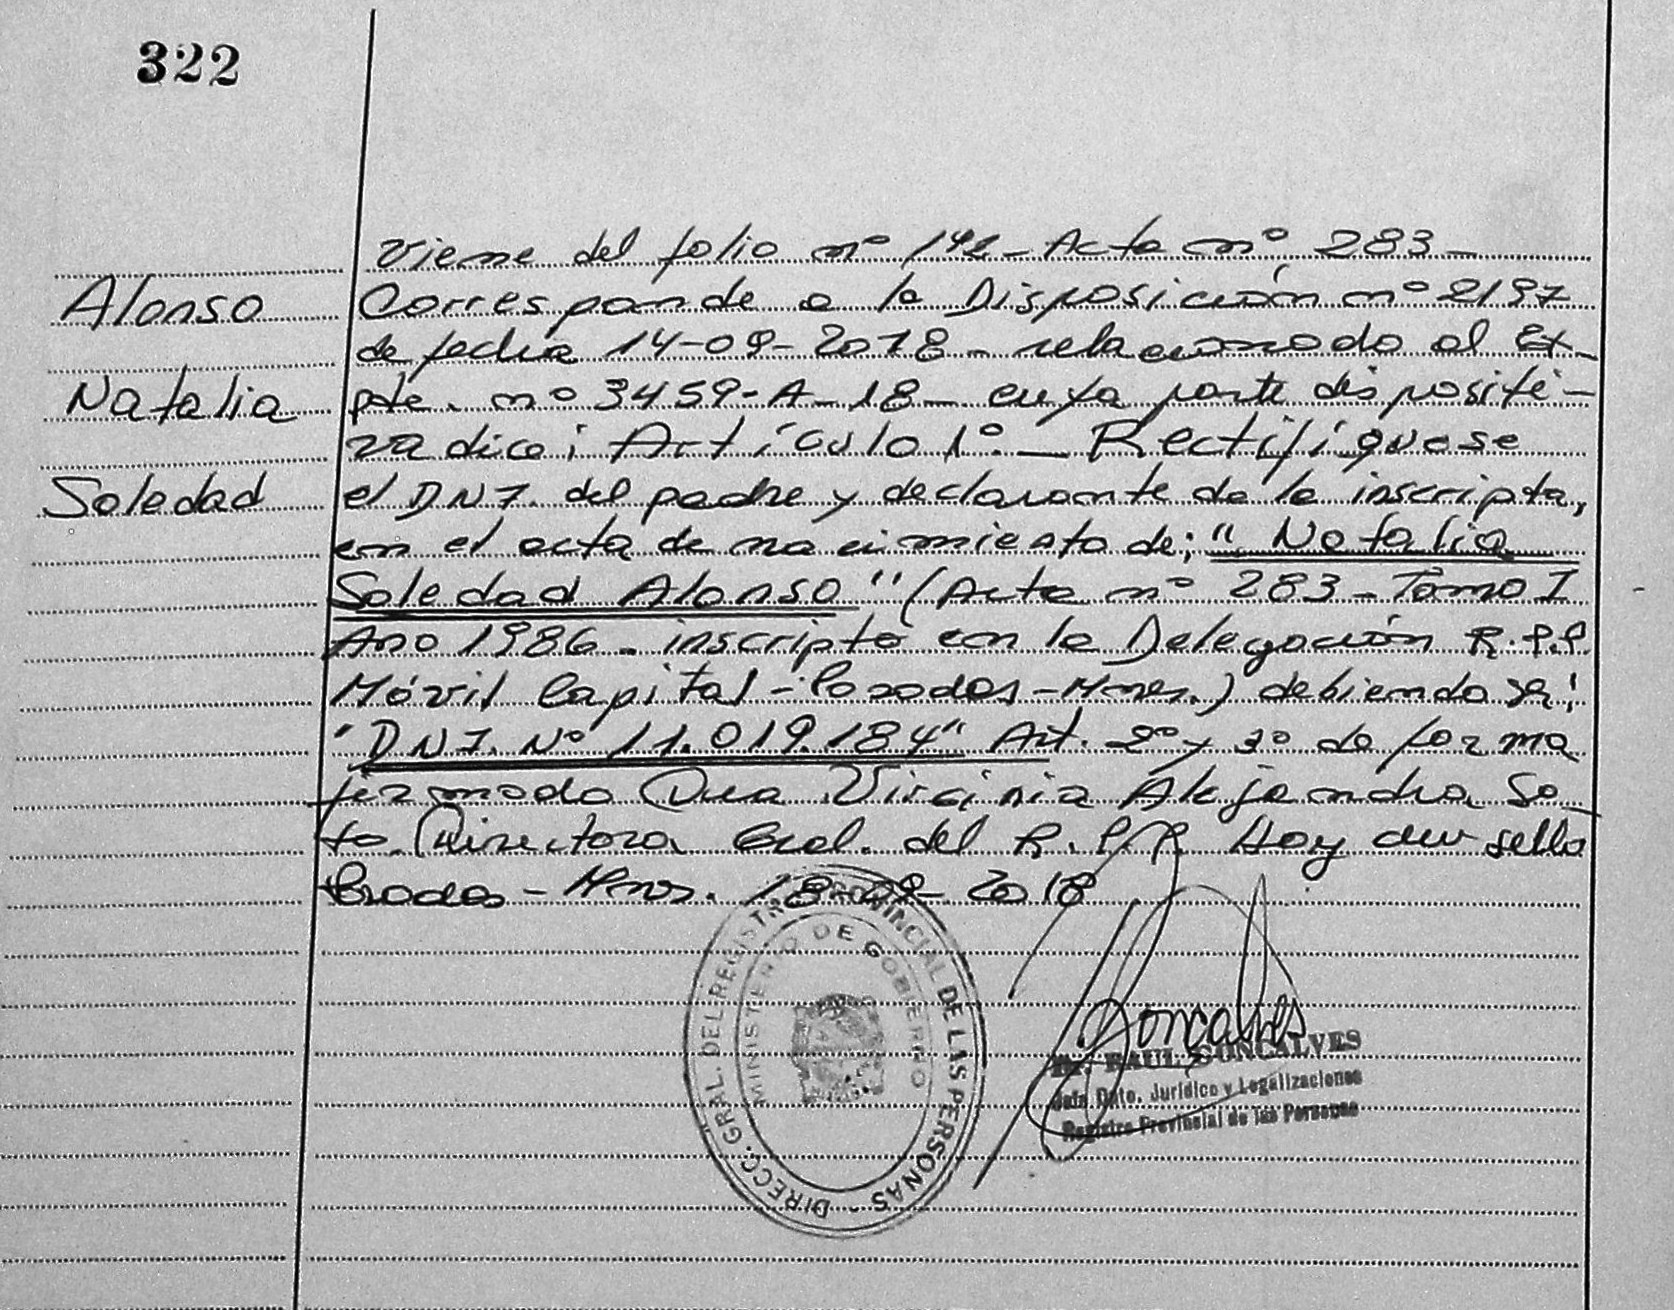 322
Alonso
Natalia
Soledad
Viene del folio nº 142 - Acta nº 283 -
Corresponde a la Disposición nº 2197
de fecha 14-09-2018 - relacionado al Ex-
pte. nº 3459-A-18 - cuya parte dispositi-
va dice; Artículo 1º. - Rectifíquese
el DNI. del padre y declarante de la inscripta,
en el acta de nacimiento de; "Natalia
Soledad Alonso" (Acta nº 283 - Tomo I
Año 1986 - inscripto en la Delegación R.P.P.
Móvil Capital - Posadas - Mnes.) debiendo ser;
"DNI. Nº 11.019.184" Art. 2º y 3º de forma
firmado Dra Virginia Alejandra So-
to. Directora Gral. del R.P.P. Hoy
sello
Posadas - Mnes. 18-09-2018
DIRECC. GRAL. DEL REGISTRO PROVINCIAL DE LAS PERSONAS -
MINISTERIO DE GOBIERNO
Goncalves
Dr. RAUL GONCALVES
Jefe Dpto. Jurídico y Legalizaciones
Registro Provincial de las Personas